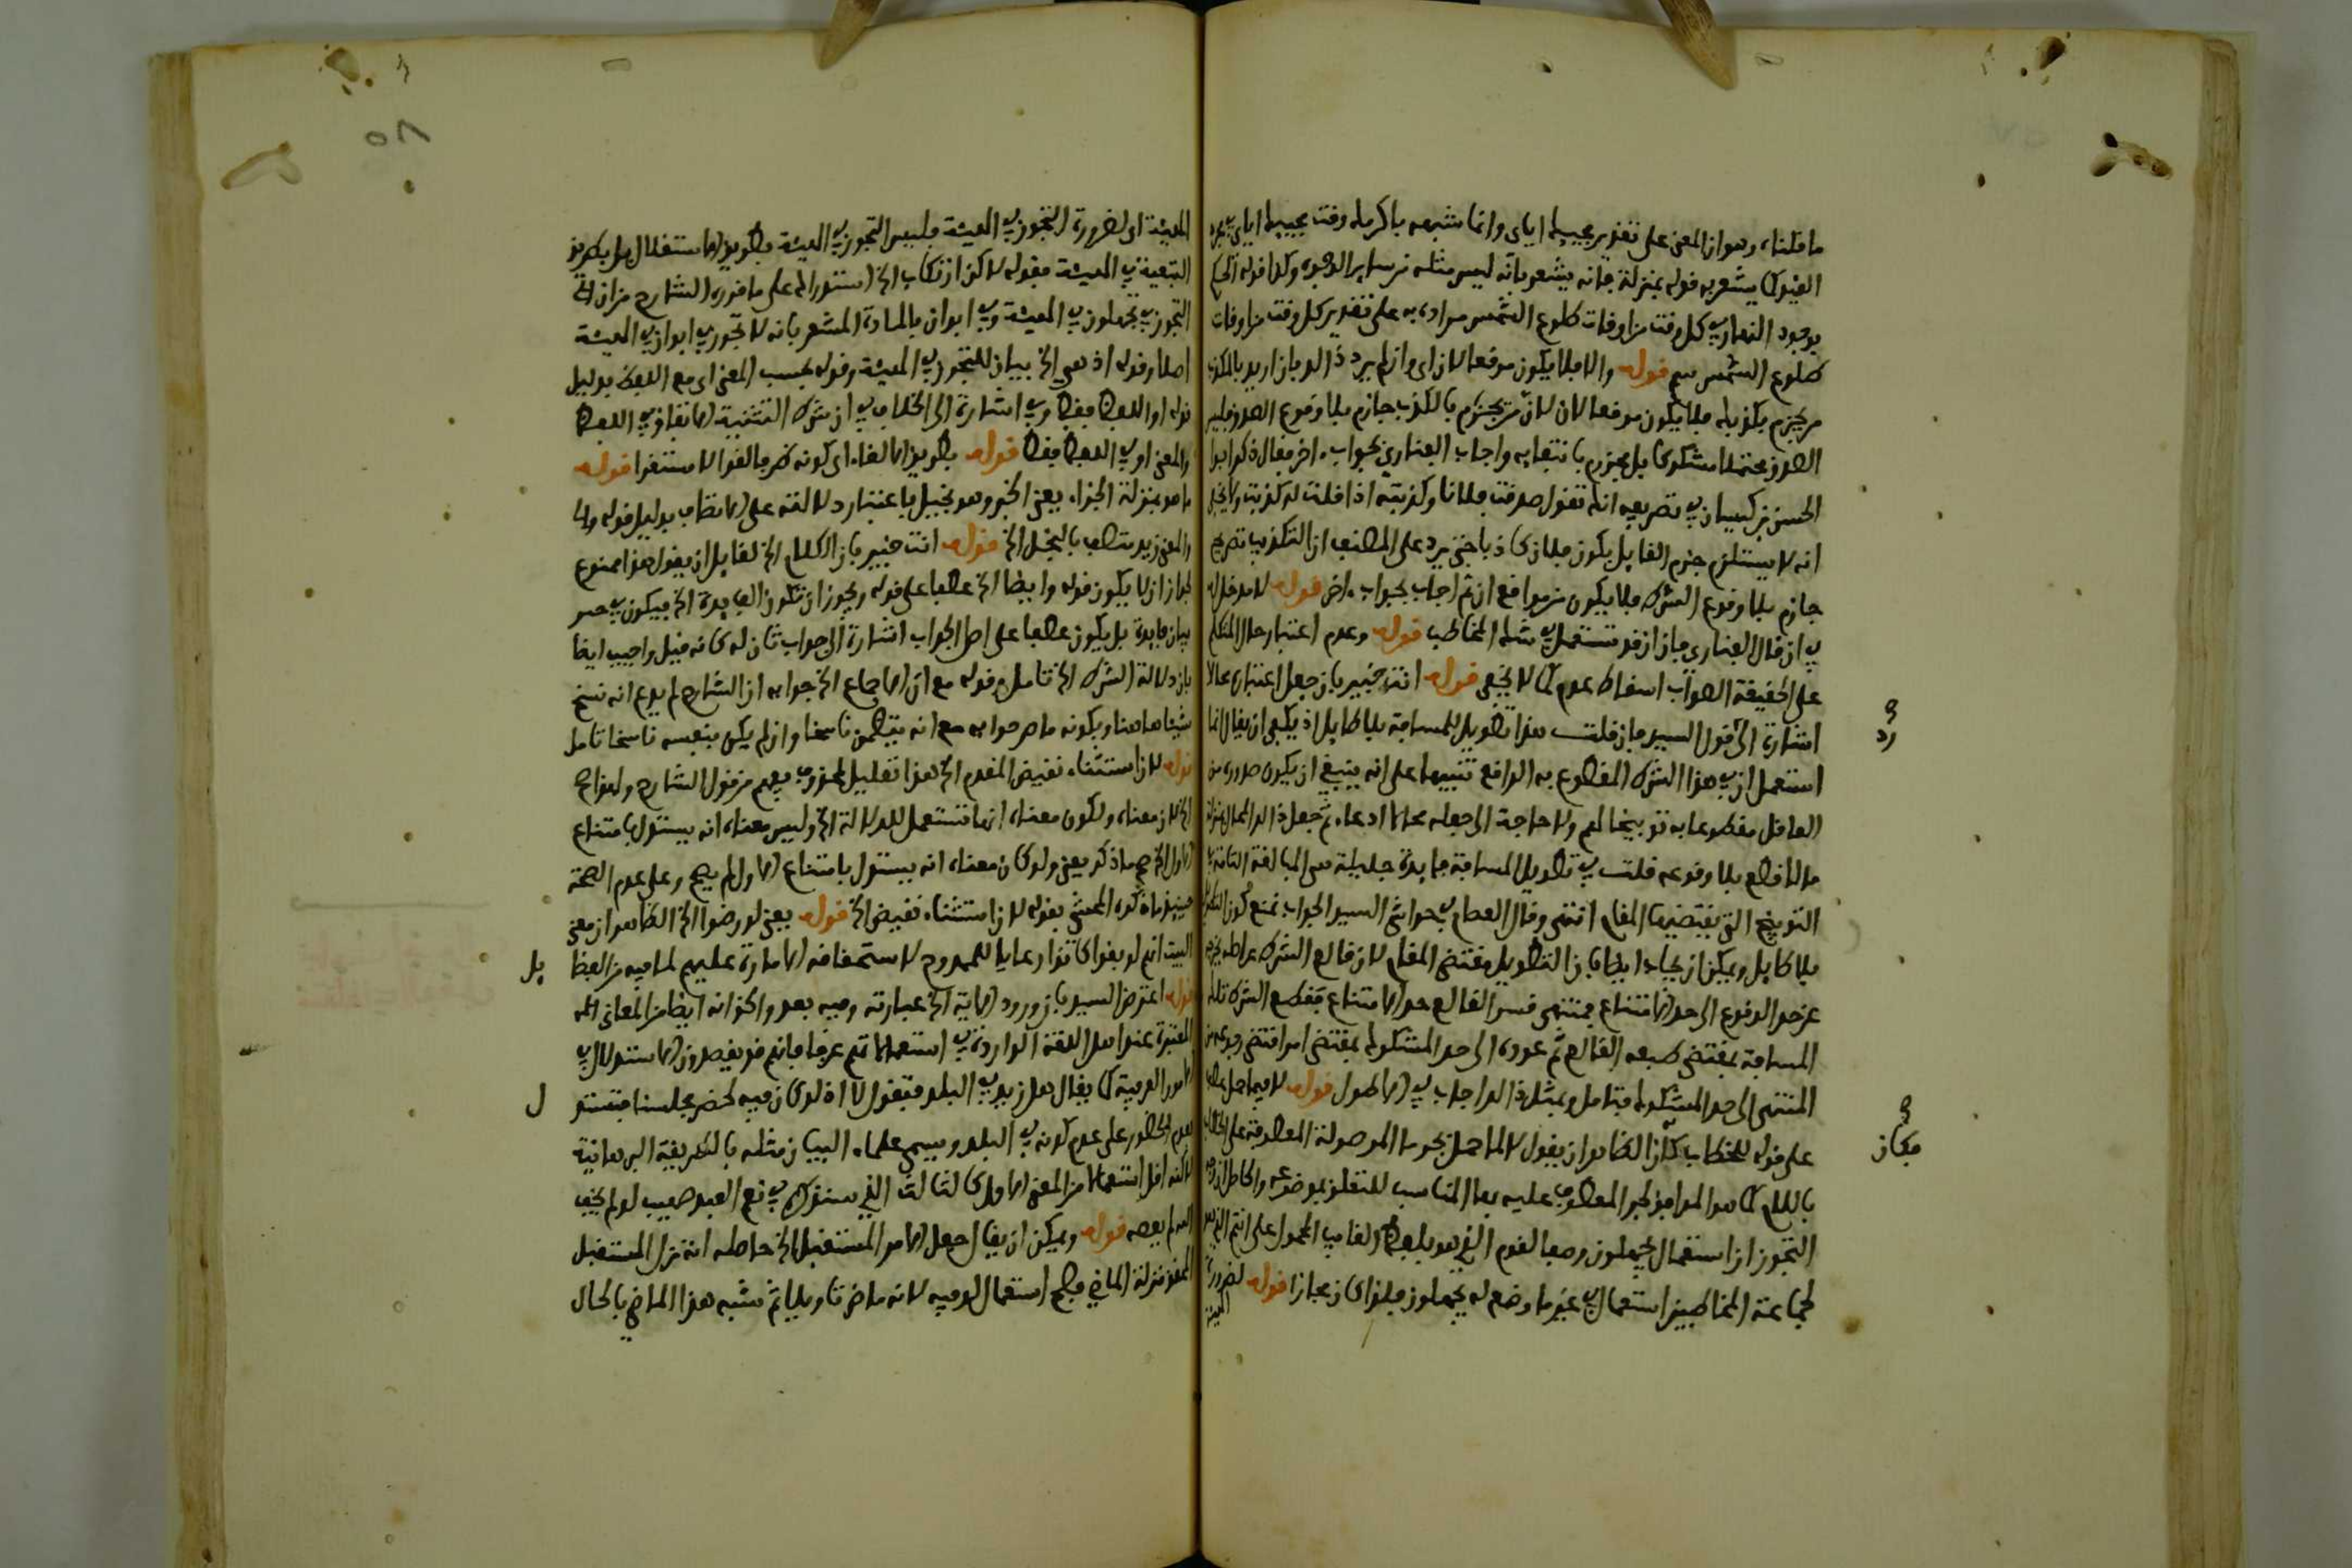 ما قلناه وهو ان المعنى على تقدير مجيئك اياى وانما شبهه باكرمك وقت مجيئك اياى
القيد كما يشعر به قوله بمنزلة فانه يشعر بانه ليس مثله من ساير الوجوه وكذا قوله الحكم
بوجود النهار في كل وقت من اوقات طلوع الشمس مراده به على تقدير كل وقت من اوقات
طلوع الشمس قوله والا فلا يكون مرفعا لان اى وان لم يرد ذلك بان اريد بالمكذب
من يجزم بكذبك فلا يكون موقعا لان لان من يجزم بالكذب جازم بلا وقوع
مشكوكا بل يجزم بانتفايه واجاب الفناري بجواب اخر فقال ذكر ابوا
الحسن بن كيسان في تصريفه انك تقول صدقت فلانا وكذبته اذا قلت له كذبت
انه لا يستلزم جزم القايل بكون فلان كاذبا حتى يرد على المصنف ان التكذيب تصريح
جازم بلا وقوع الشرط فلا يكون من مواقع ان ثم اجاب بجواب اخر قوله لا مدخل له
ان قال الفناري فان ان قد تستعمل في شك المخاطب قوله وعدم اعتبار حال المتكلم
على الحقيقة الصواب اسقاط عدم كما لا يخفى قوله انت خبير بان جعل اعتبارى محالا
اشارة الى قول السيد فان قلت هذا تطويل للمسافة بلا طايل اذ يكفى ان يقال انما
استعمل ان في هذا الشرط المقطوع به الواقع تنبيها على انه ينبغي ان يكون صدوره من
العاقل مقطوعا به توبيخا لهم ولا حاجة الى جعله محالا ادعاء ثم جعل ذلك المحال بمنزلة
ما لا قطع بلا وقوعه قلت في تطويل المسافة فايدة جليلة هي المبالغة التامة في
التوبيخ التي يقتضيها المقام انتهى وقال العصام في حواشى السيد الجواب نمنع كون التطويل
بلا طايل ويمكن ان يجاب ايضا بان التطويل مقتضى المقام لان قالع الشرط عن اصله يخرجه
عن حد الوقوع الى حد الامتناع فمنتهى قسر القالع حد الامتناع فقطع الشرط تلك
المسافة بمقتضى طبعه القالع ثم عوده الى حد المشكوك بمقتضى امر اقتضى رجوعه من
المنتهى الى حد المشكوك فتامل وبمثل ذلك اجاب في الاطول قوله لا فيما حمل عطفا
على قوله للخطاب الظاهر ان يقول لا لما حمل بجر ما الموصولة المعطوفة على الخطاب
باللام كما هو الموافق لجر المعطوف عليه بها المناسب للتعلق بموضوعه والحاصل ان وجه
التجوز ان استعمال تجهلون وصفا لقوم الذي هو بلفظ الغايب المحمول على انتم الذي هو
لجماعة المخاطبين استعمال في غير ما وضع له تجهلون فلذا كان مجازا قوله لضرورة
المعية
رد
فكان
المعية اى لضرورة التجوز في المعية فليس التجوز في المعية بطريق الاستقلال بل بطريق
التبعية في المعية فقوله لا كن ارتكاب الخ استدراك على ما قرره الشارح من ان
التجوز في تجهلون في المعية وفي ابوان بالمادة المشعر بانه لا تجوز في ابوان في المعية
اصلا وقوله اذ هى الخ بيان للتجوز في المعية وقوله بحسب المعنى اى مع اللفظ بدليل
قوله او اللفظ فقط وفي اشارة الى الخلاف في ان شرط التثنية الاتفاق في اللفظ
والمعنى او في اللفظ فقط قوله بطريق الالغاء اى كونه ظرفا لغوا لا مستقرا قوله
ما هو بمنزلة الجزاء يعني الخبر وهو بخيل باعتبار دلالته على الاتصاف بدليل قوله
والمعنى زيد متصف بالبخل الخ قوله انت خبير بان الكلام الخ لقايل ان يقول هذا ممنوع
لجواز ان لا يكون قوله وايضا الخ عطفا على قوله ويجوز ان تكون الفايدة الخ فيكون في حيز
بيان فايدة بل يكون عطفا على اصل الجواب اشارة الى جواب ثان له كانه قيل واجيب ايضا
بان دلالة الشرط الخ تامل وقوله مع ان الاجماع الخ جوابه ان الشارح لم يدع انه نسخ
شيئا هاهنا وبكونه ما صر جوابه مع انه يتضمن ناسخا وان لم يكن بنفسه ناسخا تامل
قوله لان استثناء نقيض المقدم الخ هذا تعليل لمحذوف يفهم من قول الشارح
الخ لان معناه ولكون معناه انها تستعمل للدلالة الخ وليس معناه انه يستدل بامتناع
الاول الخ ما ذكر يعنى ولو كان معناه انه يستدل بامتناع الاول لم يصح وعلى عدم الصحة
حينئذ ما ذكره المحشى بقوله لان استثناء نقيض الخ قوله يعنى لو رضوا الخ الظاهر ان معنى
البيت انهم لو بقوا كانوا رعايا للممدوح لاستحقاقه الامارة عليهم لما فيه من
قوله اعترض السيد بان ورود الاية الخ عبارته وفيه بعد والحق انه ايضا من المعاني
المعتبرة عند اهل اللغة الواردة في استعمالاتهم عرفا فانهم قد يقصدون الاستدلال في
الامور العرفية كما يقال هل زيد في البلد فتقول لا اذ لو كان فيه لحضر مجلسنا فتستدل
بعدم الحضور على عدم كونه في البلد ويسمى علماء البيان مثله بالطريقة البرهانية
لاكنه اقل استعمالا من المعنى الاول كالثالث الذي سنذكره في نعم العبد صهيب لو لم يخف
الله لم يعصه قوله ويمكن ان يقال جعل الامر المستقبل الخ حاصله انه نزل المستقبل
منزلة الماضي فصح استعمال لو فيه لانه ماض تاويلا ثم شبه هذا الماضي بالحال
بل
ل